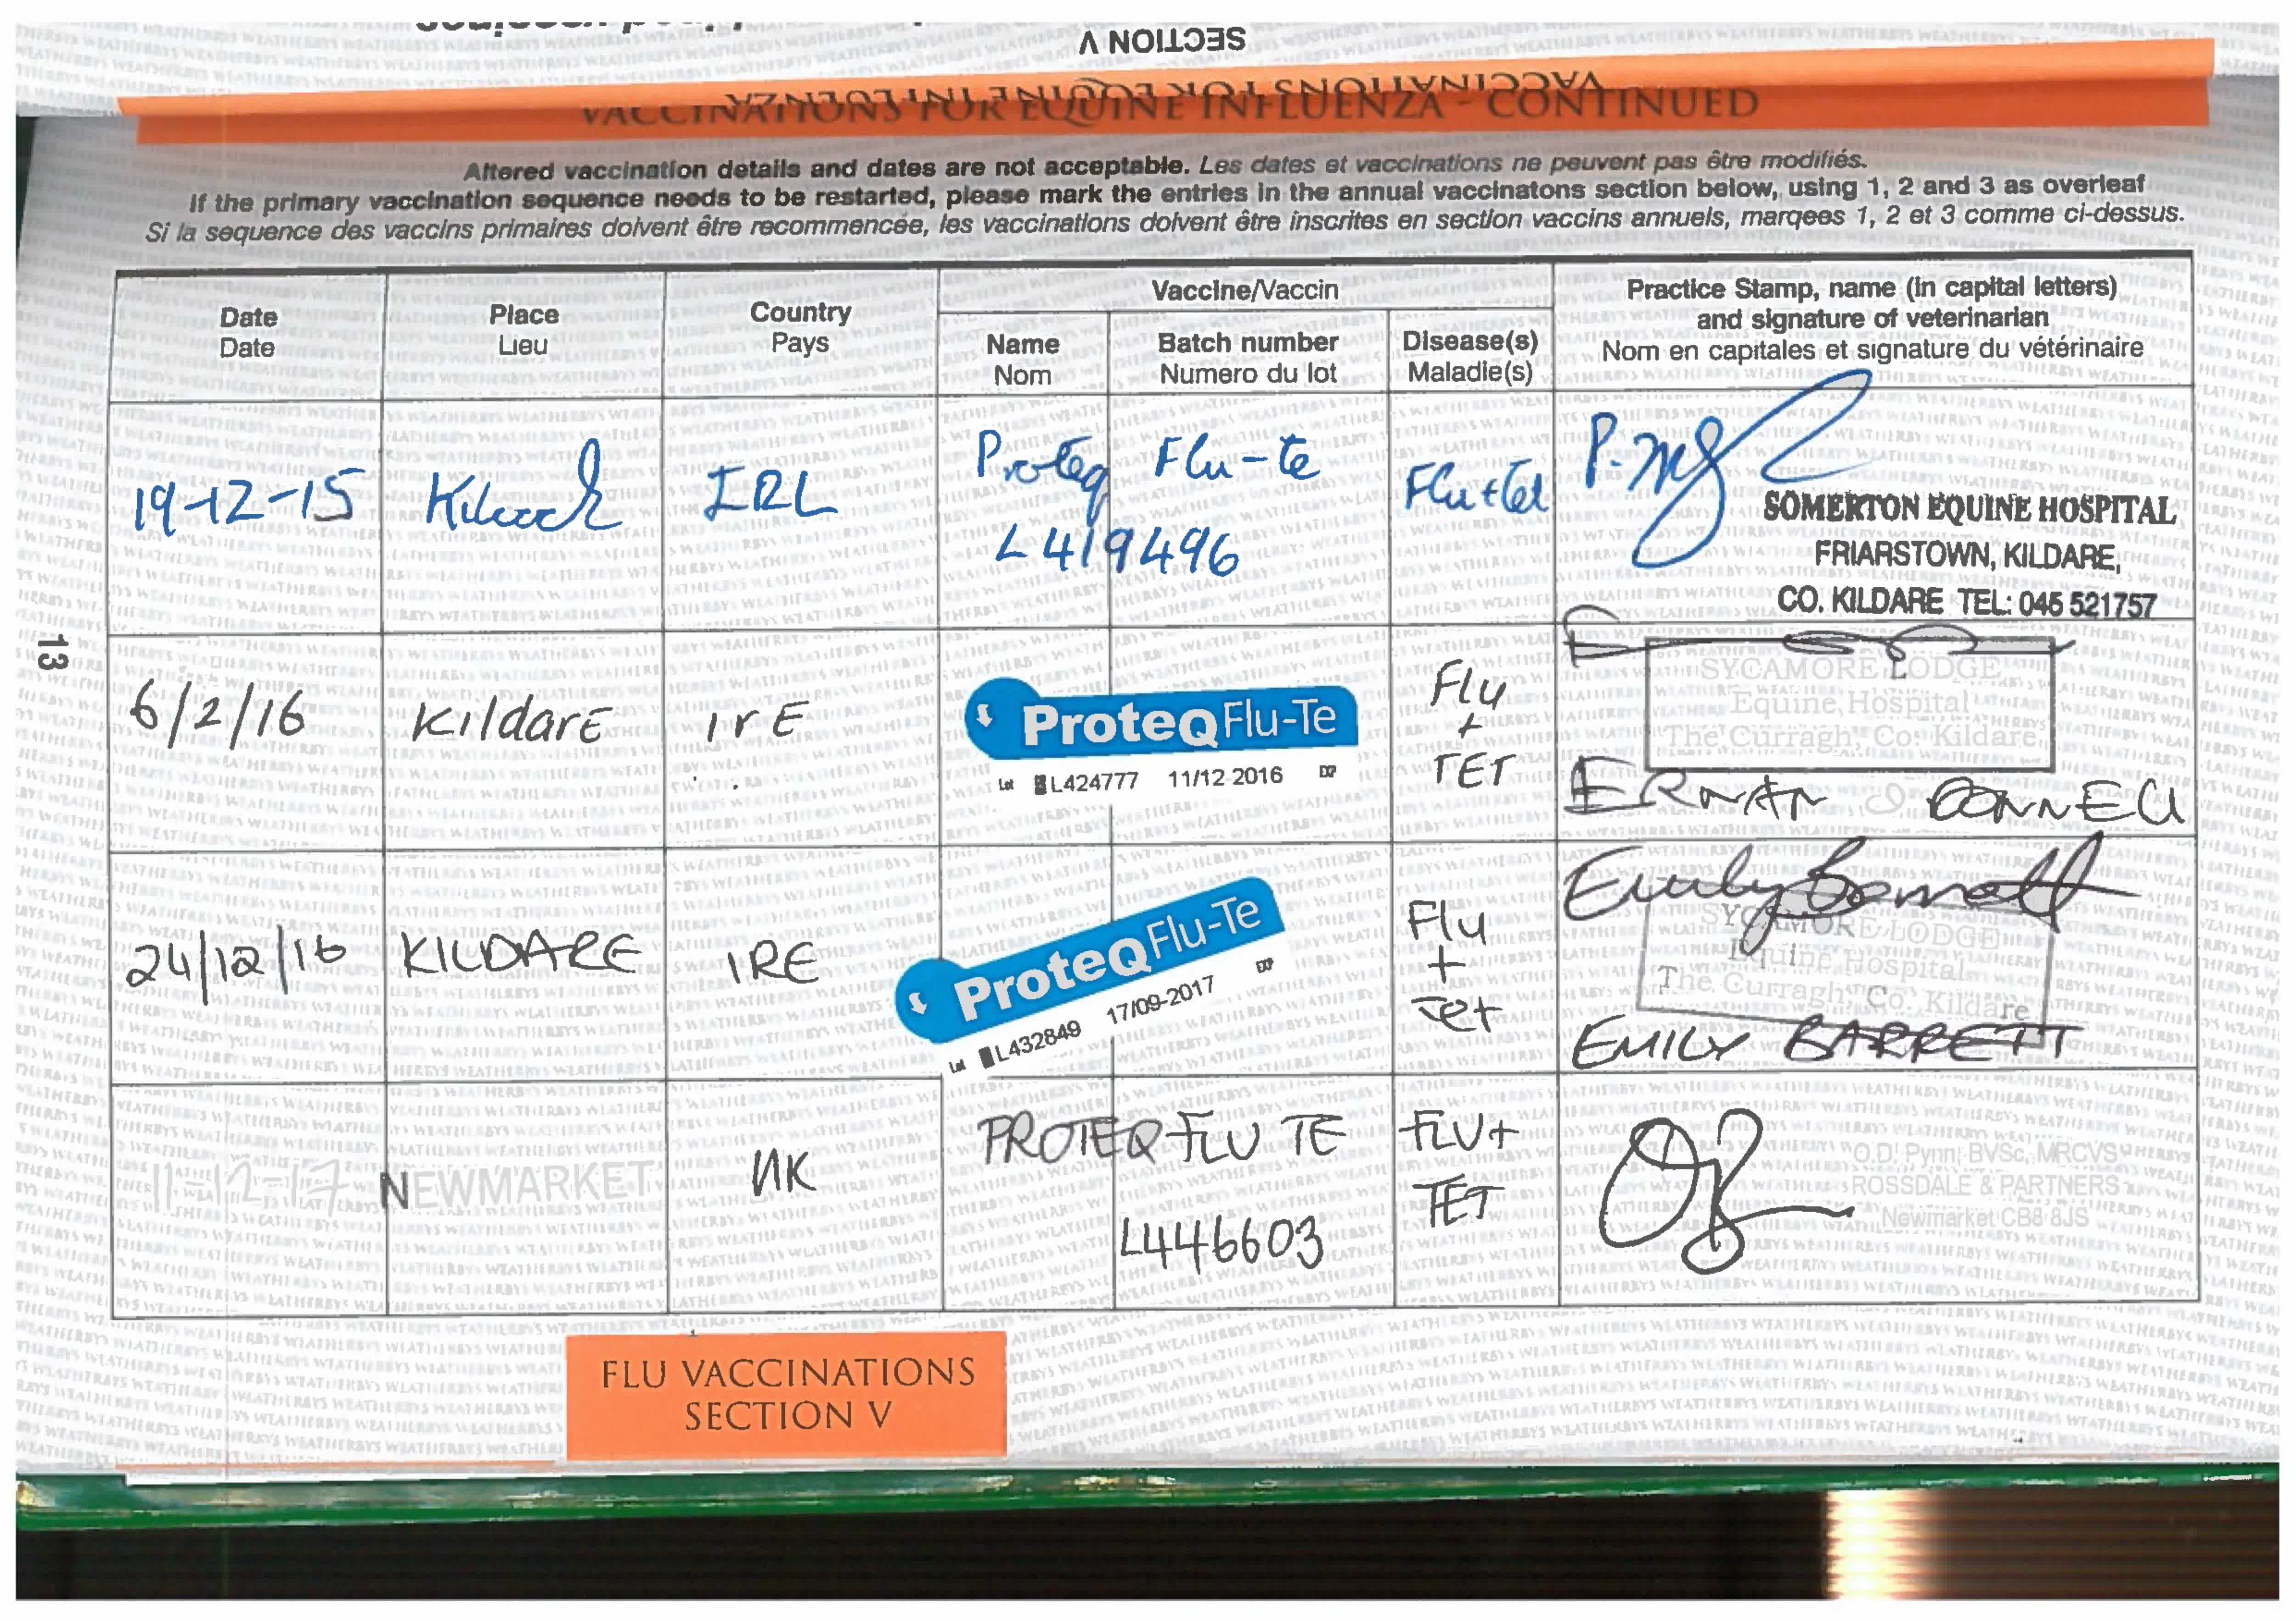 SECTION V
VACCINATIONS FOR EQUINE INFLUENZA
VACCINATIONS FOR EQUINE INFLUENZA - CONTINUED
Altered vaccination details and dates are not acceptable. Les dates et vaccinations ne peuvent pas être modifiés.
If the primary vaccination sequence needs to be restarted, please mark the entries in the annual vaccinatons section below, using 1, 2 and 3 as overleaf
Si la sequence des vaccins primaires doivent être recommencée, les vaccinations doivent être inscrites en section vaccins annuels, marqees 1, 2 et 3 comme ci-dessus.
Date
Date
Place
Lieu
Country
Pays
Vaccine/Vaccin
Name
Nom
Batch number
Numero du lot
Disease(s)
Maladie(s)
Practice Stamp, name (in capital letters)
and signature of veterinarian
Nom en capitales et signature du vétérinaire
19-12-15 Kilcock IRL Proteq Flu-te
L419496
Flu+tet
SOMERTON EQUINE HOSPITAL
FRIARSTOWN, KILDARE,
CO. KILDARE TEL: 045 521757
13
6/2/16 Kildare IrE
ProteqFlu-Te
Lot L424777 11/12 2016 EXP
Flu
+
TET
SYCAMORE LODGE
Equine Hospital
The Curragh, Co. Kildare
ERNAN O CONNELL
24/12/16 KILDARE IRE
ProteqFlu-Te
Lot L432849 17/09-2017 EXP
Flu
+
Tet
Emily Barrett
SYCAMORE LODGE
Equine Hospital
The Curragh, Co. Kildare
EMILY BARRETT
11-12-17 NEWMARKET UK PROTEQ FLU TE
L446603
FLU+
TET
O.D. Pynn, BVSc, MRCVS
ROSSDALE & PARTNERS
Newmarket CB8 8JS
FLU VACCINATIONS
SECTION V